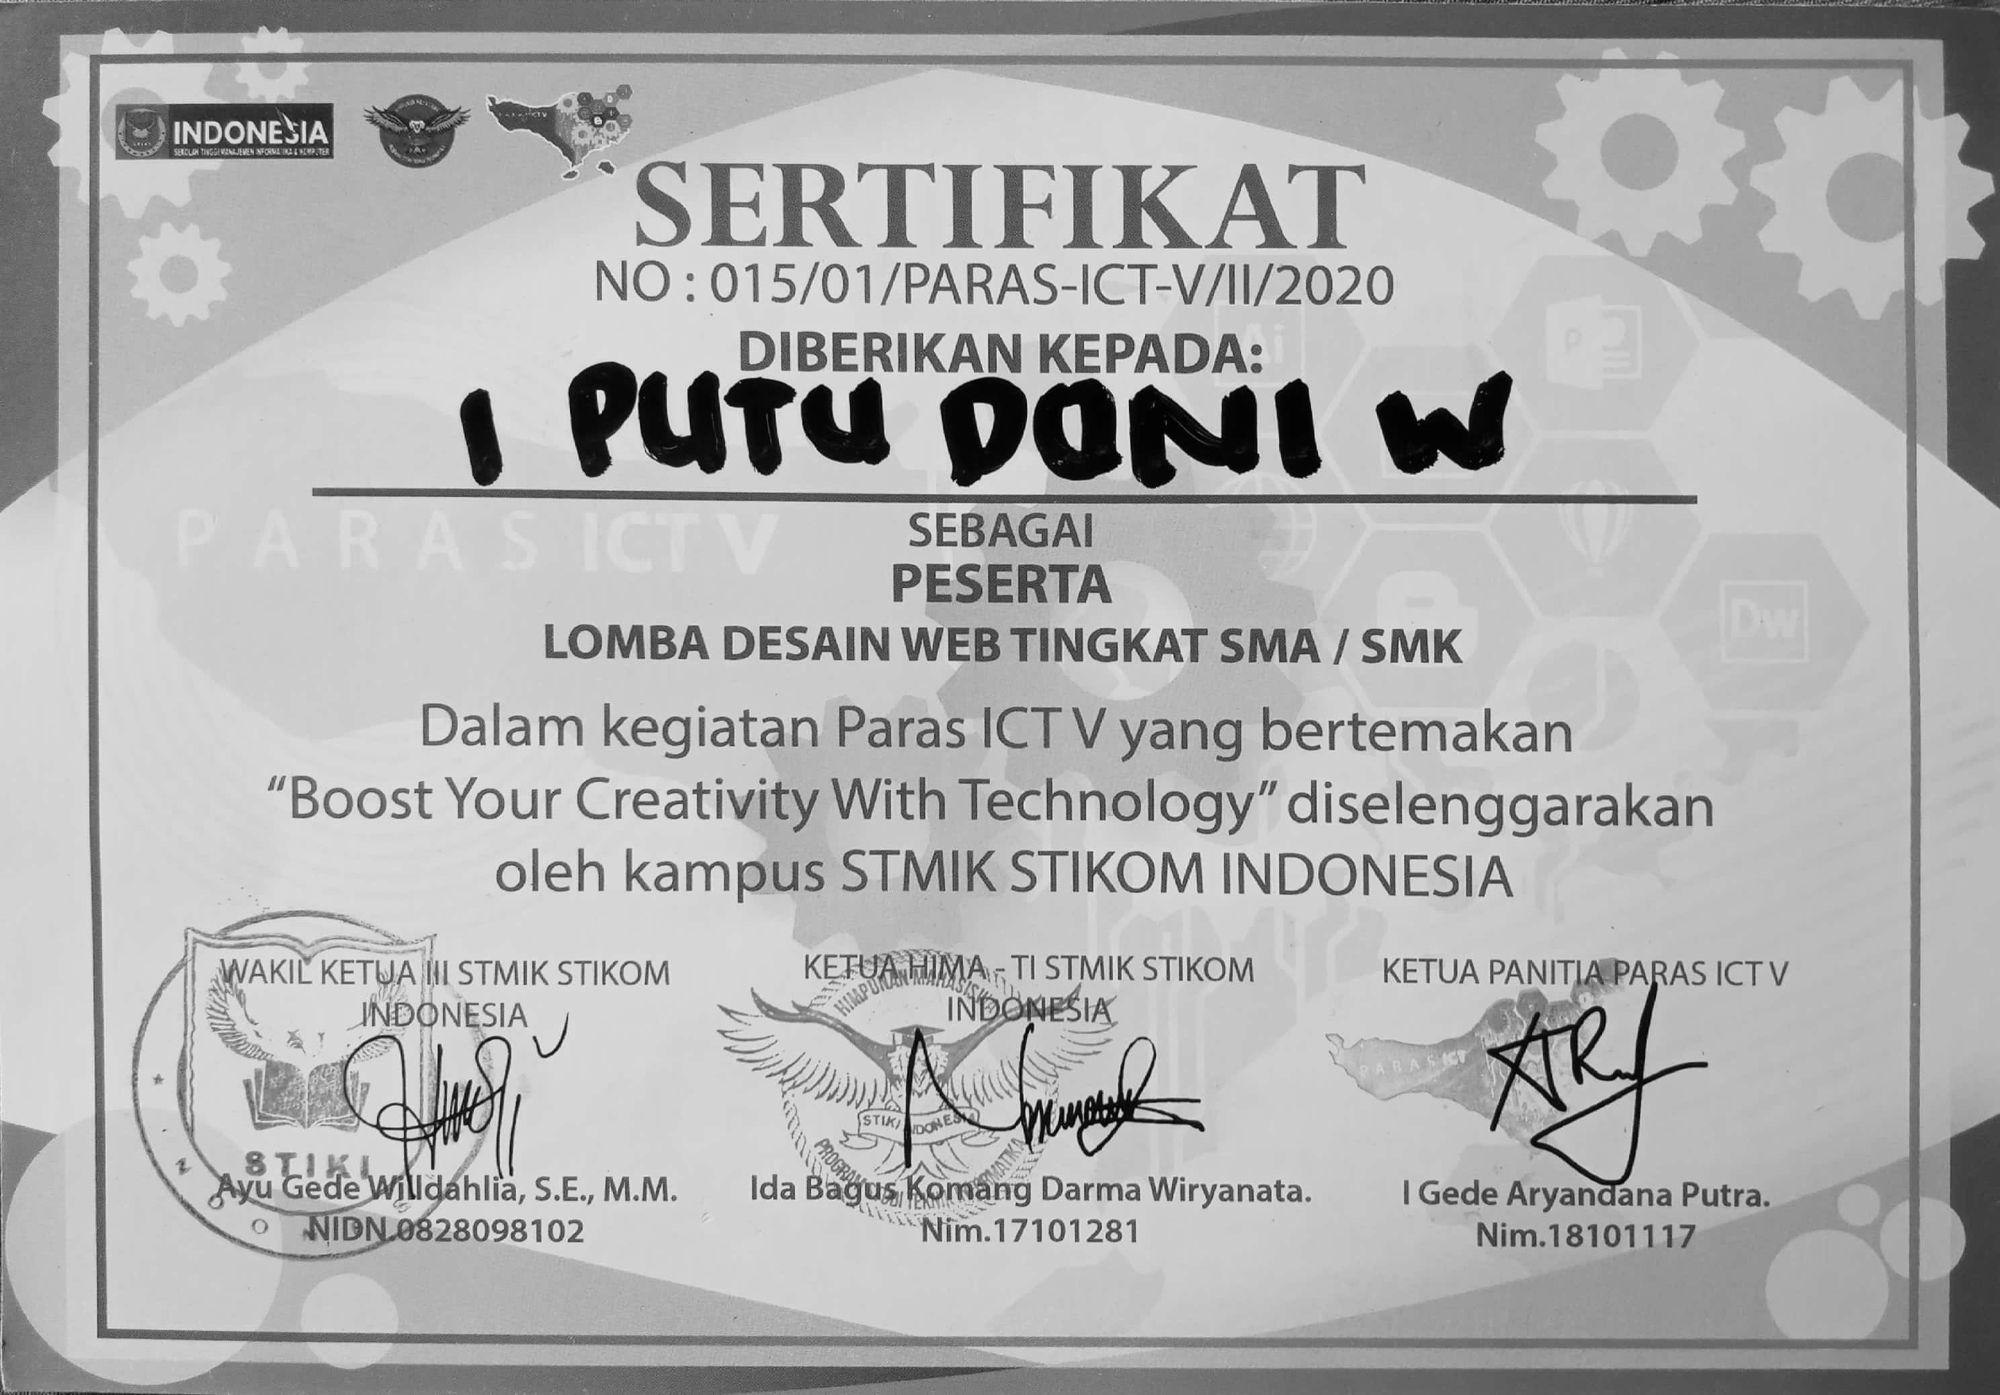 INDONESIA
SEKOLAH TINGGI MANAJEMEN INFORMATIKA & KOMPUTER
SERTIFIKAT
NO : 015/01/PARAS-ICT-V/II/2020
DIBERIKAN KEPADA:
I PUTU DONI W
PARAS ICT V
SEBAGAI
PESERTA
LOMBA DESAIN WEB TINGKAT SMA / SMK
Dw
Dalam kegiatan Paras ICT V yang bertemakan
“Boost Your Creativity With Technology” diselenggarakan
oleh kampus STMIK STIKOM INDONESIA
WAKIL KETUA III STMIK STIKOM
INDONESIA
STIKI
Ayu Gede Willdahlia, S.E., M.M.
NIDN.0828098102
KETUA HIMA - TI STMIK STIKOM
INDONESIA
HIMPUNAN MAHASISWA
STIKI INDONESIA
Ida Bagus Komang Darma Wiryanata.
Nim.17101281
KETUA PANITIA PARAS ICT V
PARAS ICT
I Gede Aryandana Putra.
Nim.18101117